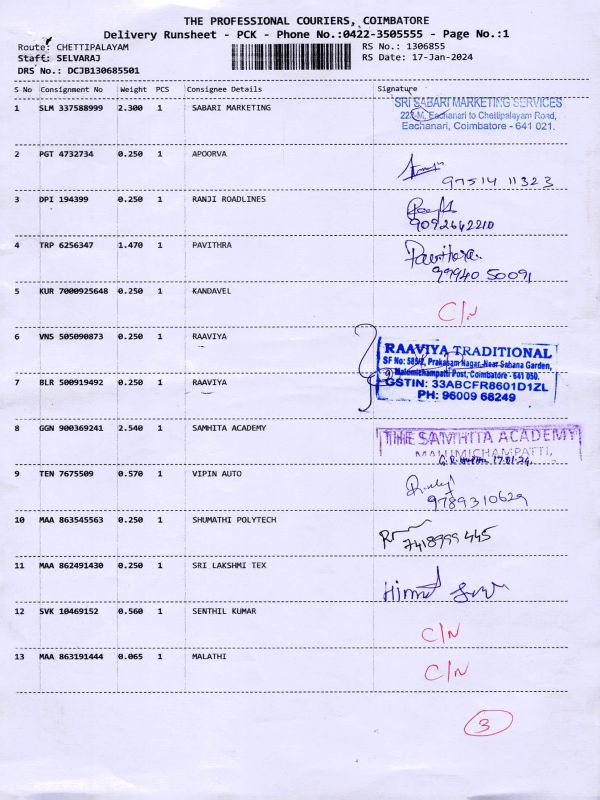 THE PROFESSIONAL COURIERS, COIMBATORE
Delivery Runsheet - PCK - Phone No.:0422-3505555 - Page No.:1
Route: CHETTIPALAYAM
RS No.: 1306855
Staff: SELVARAJ
RS Date: 17-Jan-2024
DRS No.: DCJB130685501
S No Consignment No Weight PCS Consignee Details Signature
1 SLM 337588999 2.300 1 SABARI MARKETING
SRI SABARI MARKETING SERVICES
Eachanari to Chettipalayam Road,
Eachanari, Coimbatore - 641 021.
2 PGT 4732734 0.250 1 APOORVA
97514 11323
3 DPI 194399 0.250 1 RANJI ROADLINES
9092642210
4 TRP 6256347 1.470 1 PAVITHRA
Pavithra
99940 50091
5 KUR 7000925648 0.250 1 KANDAVEL
C/N
6 VNS 505090873 0.250 1 RAAVIYA
RAAVIYA TRADITIONAL
SF No: 585/2, Prakasam Nagar, Near Sahana Garden,
Malumichampatti Post, Coimbatore - 641 050.
GSTIN: 33ABCFR8601D1ZL
PH: 96009 68249
7 BLR 500919492 0.250 1 RAAVIYA
8 GGN 900369241 2.540 1 SAMHITA ACADEMY
THE SAMHITA ACADEMY
MALUMICHAMPATTI,
17.01.24.
9 TEN 7675509 0.570 1 VIPIN AUTO
9789310629
10 MAA 863545563 0.250 1 SHUMATHI POLYTECH
7418999445
11 MAA 862491430 0.250 1 SRI LAKSHMI TEX
12 SVK 10469152 0.560 1 SENTHIL KUMAR
C/N
13 MAA 863191444 0.065 1 MALATHI
C/N
3